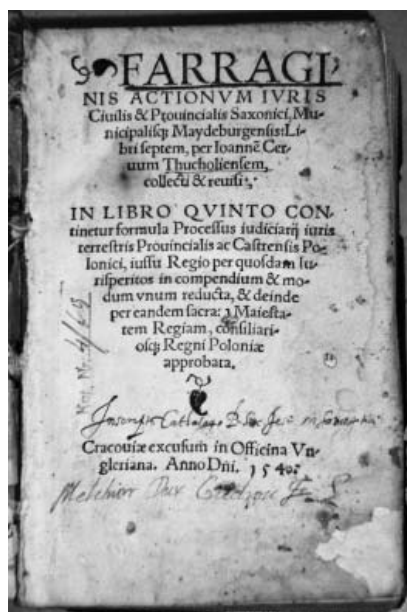 FARRAGI-
NIS ACTIONVM IVRIS
Ciuilis & Prouincialis Saxonici, Mu-
nicipalisq; Maydeburgensis: Li-
bri septem, per Ioannē Cer-
uum Thucholiensem,
collecti & reuisi
IN LIBRO QVINTO CON
tinetur formula Processus iudiciarij iuris
terrestris Prouincialis ac Castrensis Po-
lonici, iussu Regio per quosdam Iu-
risperitos in compendium & mo-
dum vnum reducta, & deinde
per eandem sacra: Maiesta-
tem Regiam, consiliari-
osq; Regni Poloniæ
approbata.
Cracouiæ excusum in Officina Vn-
gleriana. Anno Dñi. 1540.
Melchior